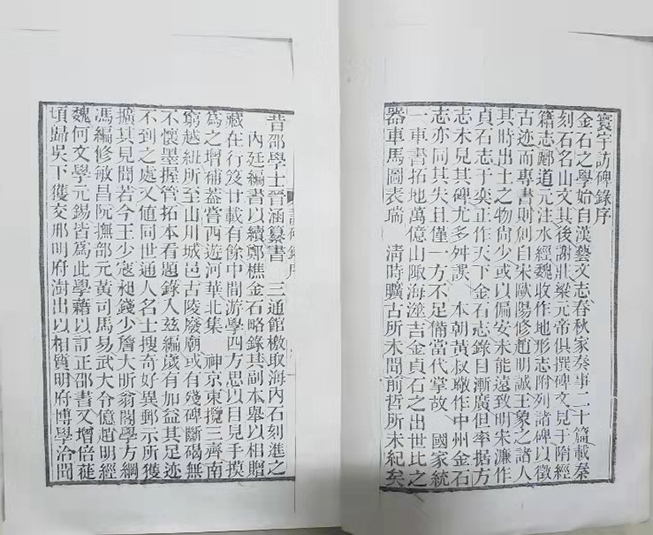 寰宇訪碑錄序
金石之學始自漢藝文志春秋家奏事二十篇載秦
刻石名山文其後謝莊梁元帝俱撰碑文見于隋經
籍志酈道元注水經魏收作地形志附列諸碑以徵
古迹而專書則剏自宋歐陽修趙明誠王象之諸人
其時出土之物尚少或以偏安未能遠致明宋濂作
貞石志于奕正作天下金石志錄目漸廣但率据方
志未見其碑尤多舛誤 本朝黃叔璥作中州金石
志亦失且僅一方不足備當代掌故 國家統
一車書拓地萬億山陬海澨吉金貞石之出世比之
器車馬圖表瑞 清時曠古所未聞前哲所未紀矣
昔邵學士晉涵纂書 三通館檄取海內石刻進之
內廷編書以續鄭樵金石略錄其副本舉以相贈
藏在行笈廿載有餘中間游學四方思以目見手摸
為之增補蓋嘗西遊河華北集 神京東攬三齊南
窮越紐所至山川城邑古陵廢廟或有殘碑斷碣無
不懷墨握管拓本看題錄入玆編歲有加益其足迹
不到之處又值同世通人名士搜奇好異郵示所獲
擴其見聞若今王少寇昶錢少詹大昕翁閣學方綱
馮編修敏昌阮撫部元黃司馬易武大令億趙明經
魏何文學元錫皆為此學藉以訂正邵書又增倍蓰
頃歸吳下獲交邢明府澍出以相質明府博學洽聞